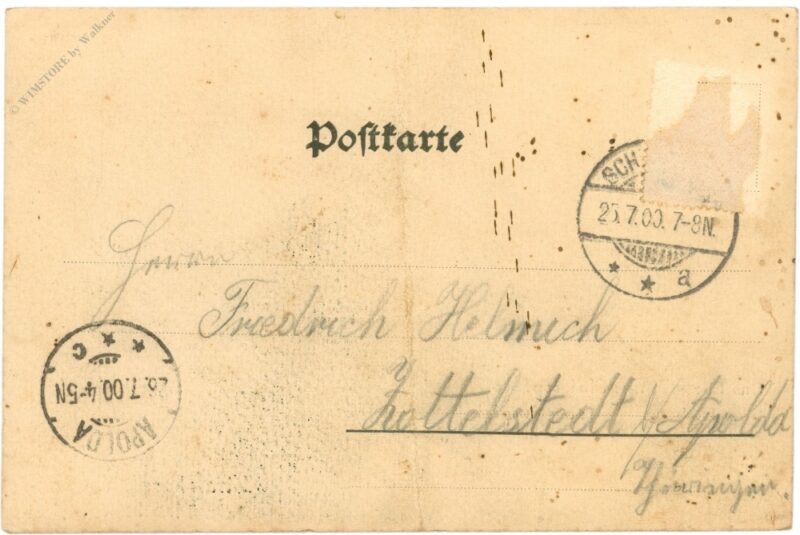 © WIMSTORE by Walkner
Postkarte
SCH
25.7.00. 7-8N.
* * a
Herrn
Friedrich Helmich
Zottelstedt b/Apolda
Thüringen.
* * C
26.7.00. 4-5N
APOLDA